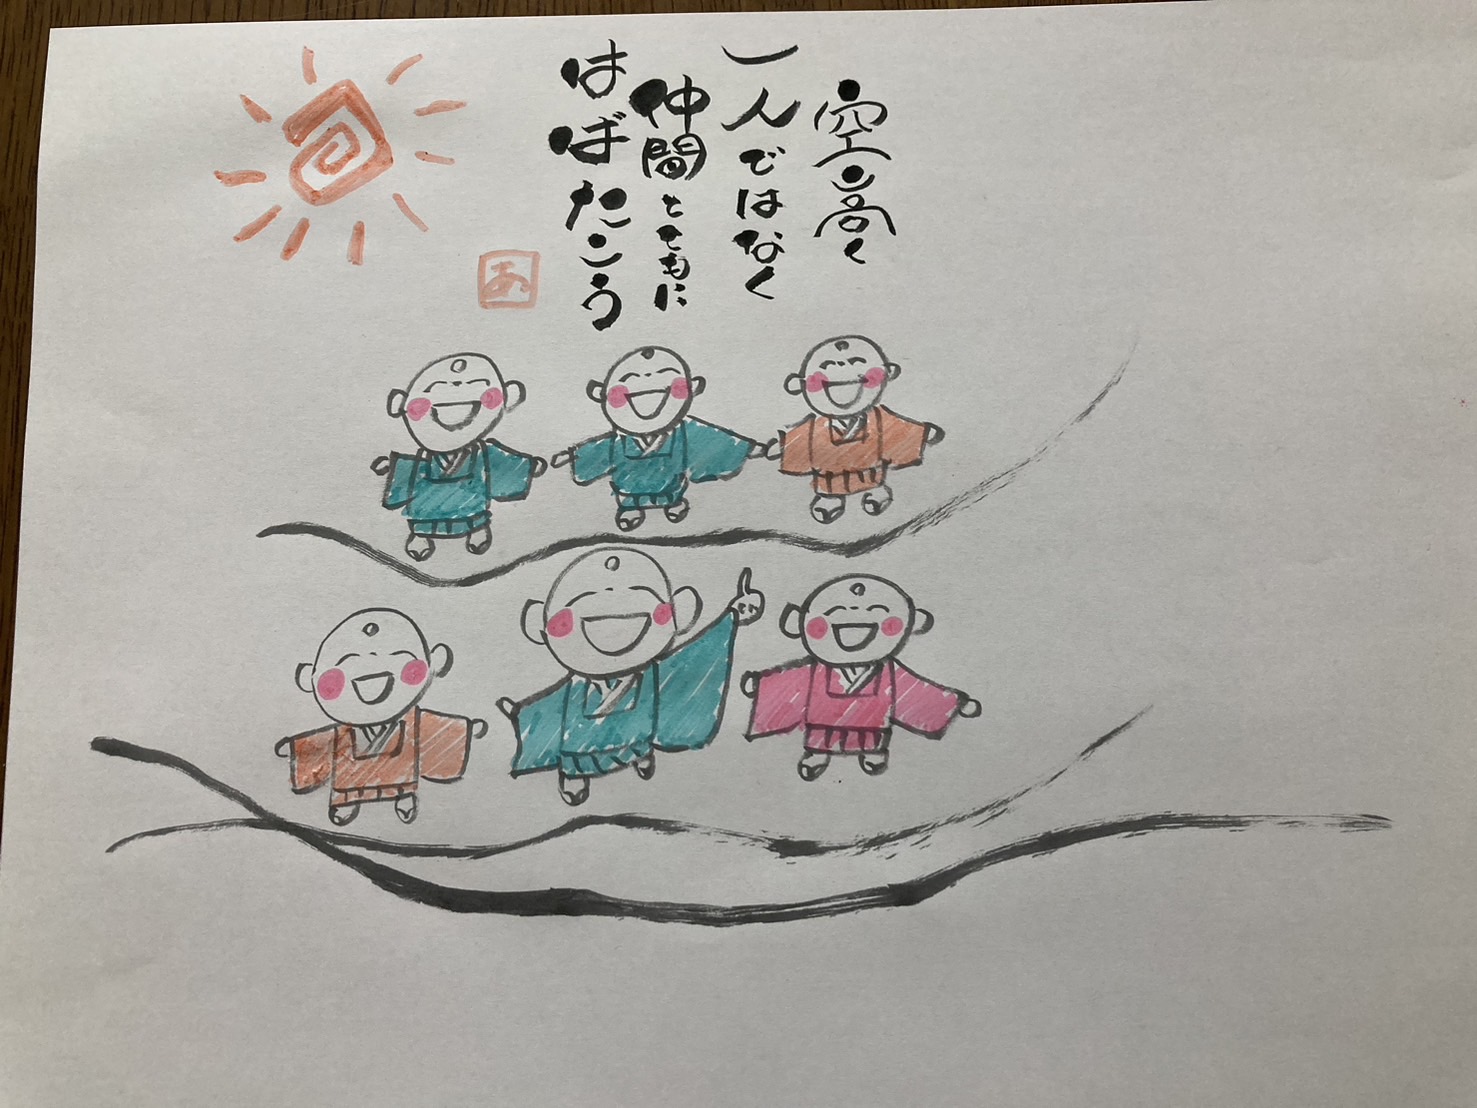 空高く
一人ではなく
仲間とともに
はばたこう
あ